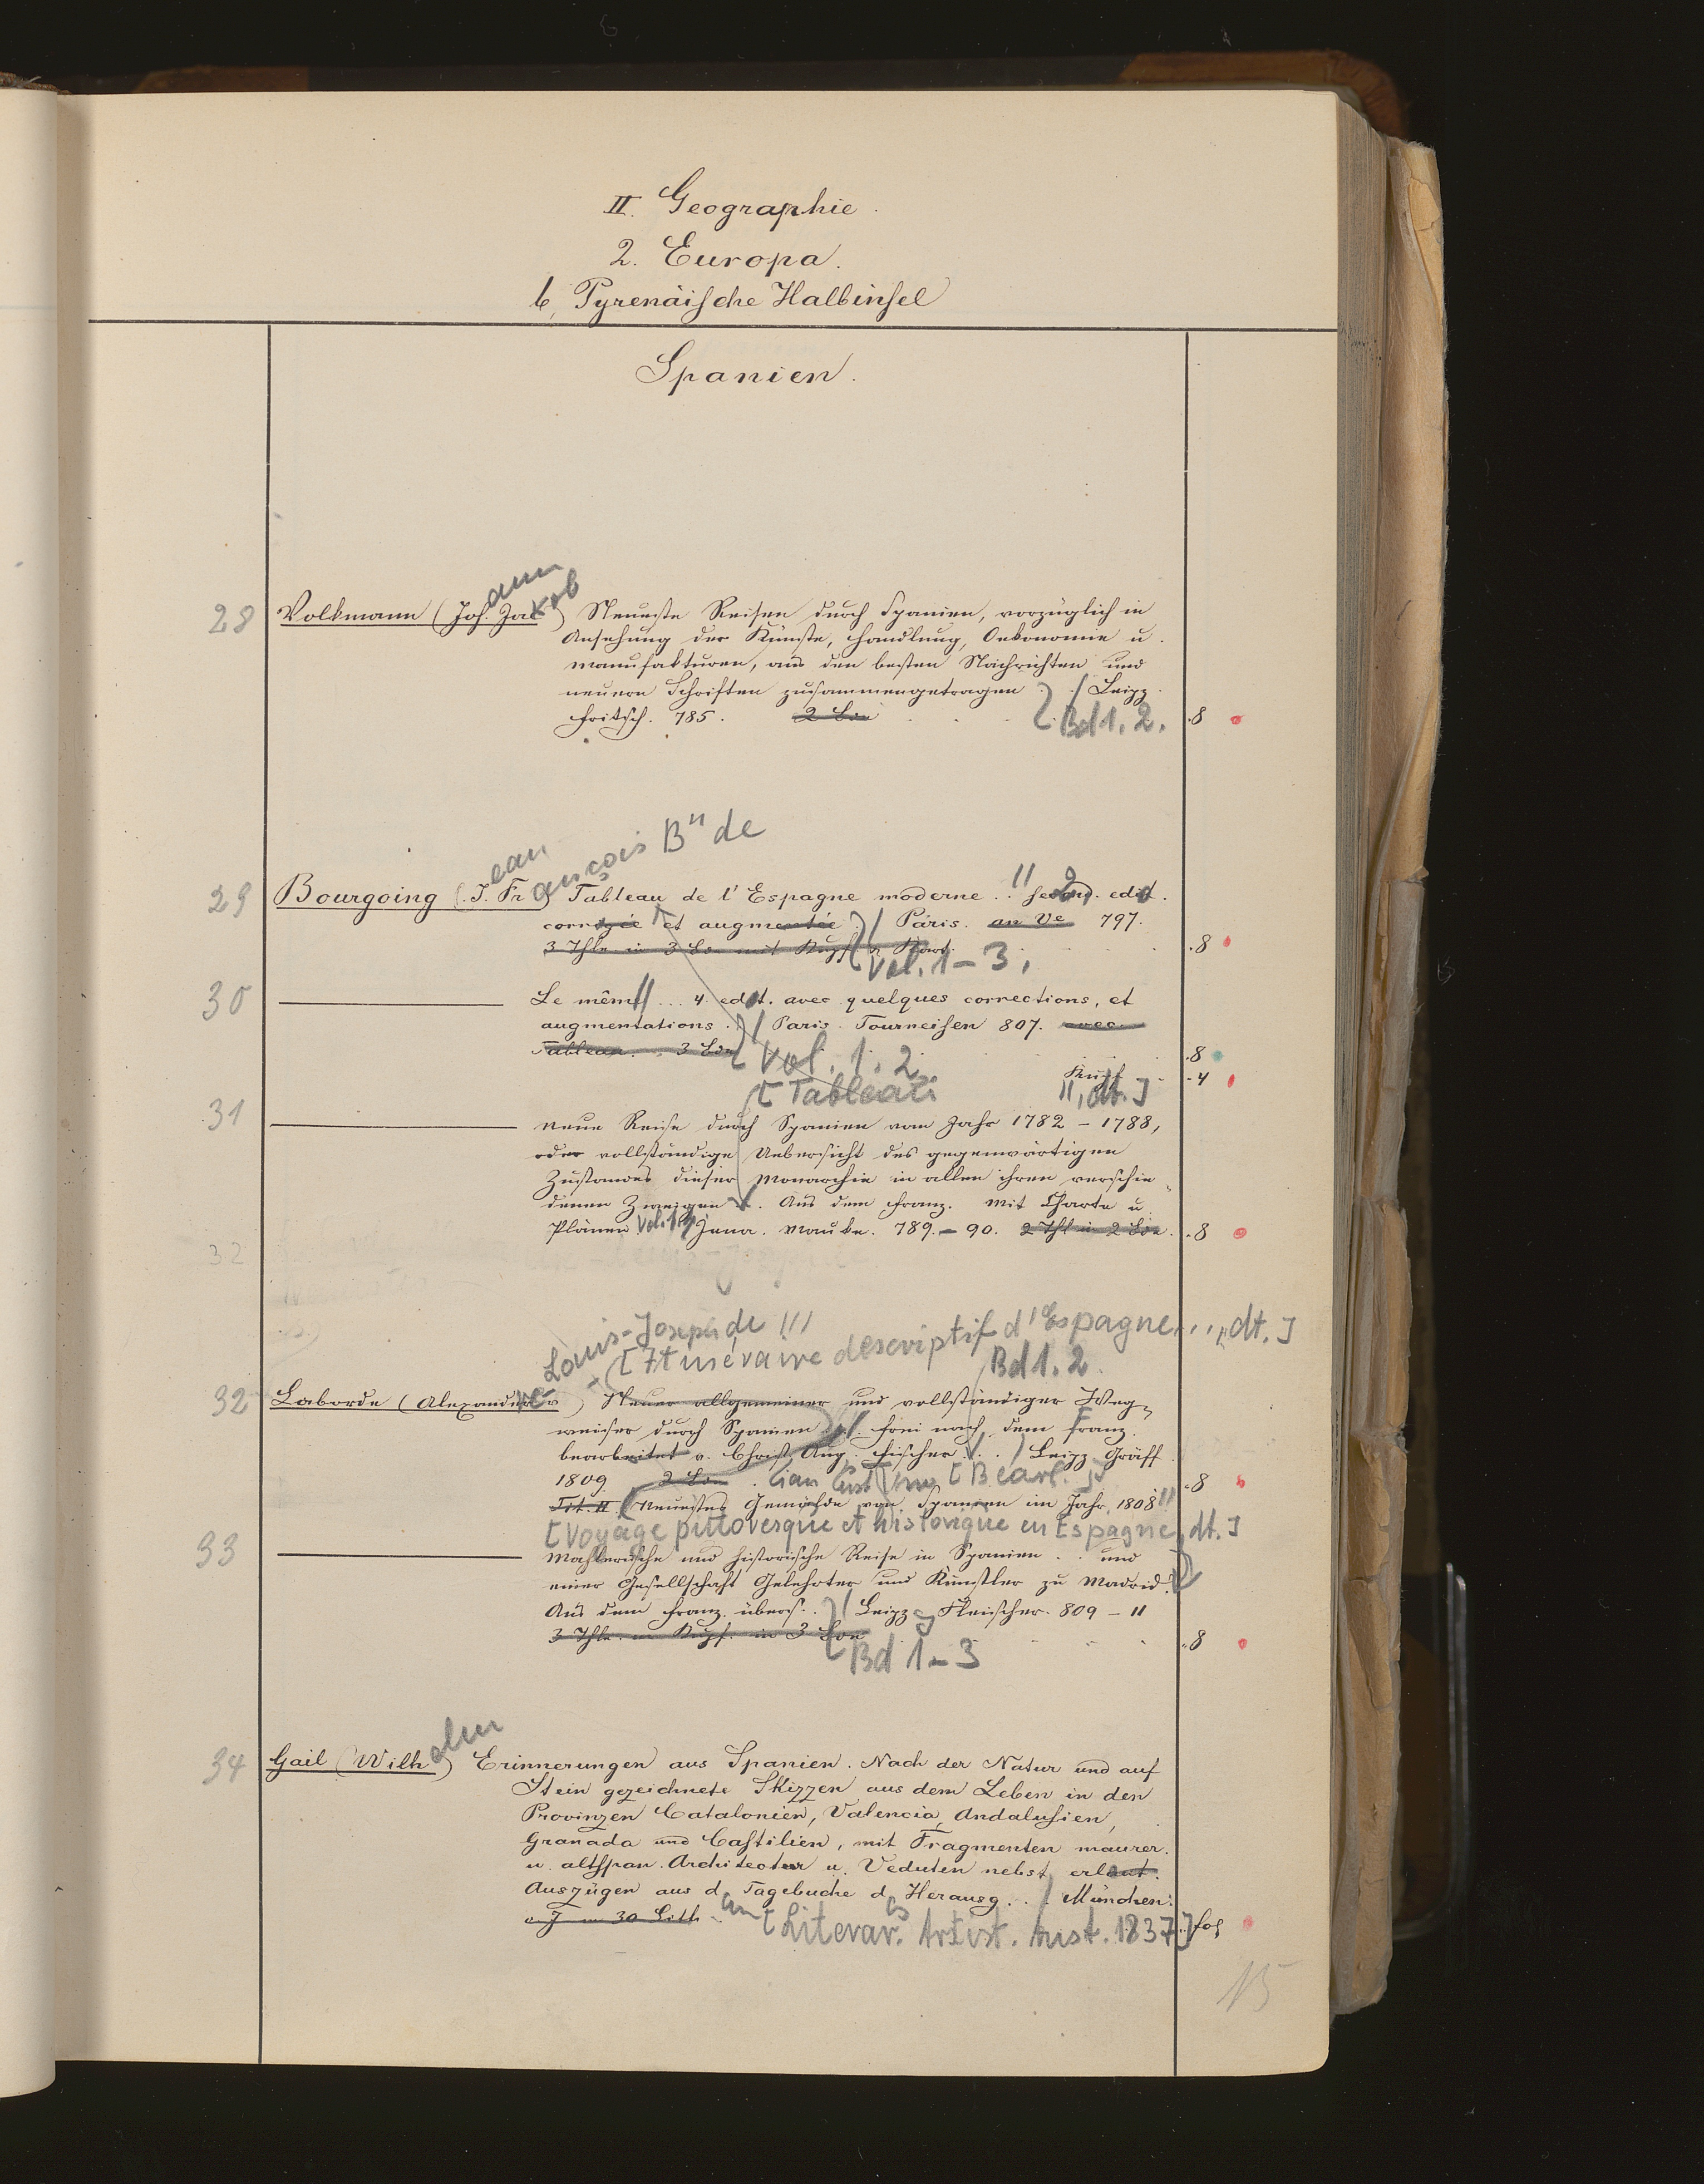 II. Geographie.
2. Europa.
b, Pyrenäische Halbinsel
Spanien.
ann
kob
28 Volkmann (Joh. Jak) Neueste Reisen durch Spanien, vorzüglich in
Ansehung der Künste, Handlung, Oekonomie u.
Manufakturen, aus den besten Nachrichten und
neuern Schriften zusammengetragen . . / Leipz.
Fritsch. 785. 2 Bde [Bd 1. 2. . 8
ean ançois Bⁿ de
29 Bourgoing (J. Fr) Tableau de l'Espagne moderne . . second. edit.
corrigée et augmentée . / Paris. an Ve 797.
3 Thle in 3 Bde mit Kupf. u Kart. . 8
Vol. 1 - 3.
30 Le même // ... 4. edit. avec quelques corrections, et
augmentations . / Paris. Tourneisen 807. avec
Tableau. 3 Bde . 8
[Vol. 1. 2.
Kupf. - 4
[Tableau ", dt.]
31 Neue Reise durch Spanien vom Jahr 1782 - 1788,
oder vollständige Uebersicht des gegenwärtigen
Zustandes dieser Monarchie in allen ihren verschie-
denen Zweigen. Aus dem Franz. Mit Charte u.
Plänen. Vol. 1. 2 Jena. Mauke. 789. - 90. 2 Thl in 2 Bde. . 8
32
Louis-Joseph de
[Itinéraire descriptif d'Espagne . . . dt.]
Bd 1. 2.
32 Laborde (Alexander) Neuer allgemeiner und vollständiger Weg-
weiser durch Spanien . . frei nach dem Franz.
bearbeitet v. Christ. Aug. Fischer . . / Leipz. Gräff
1809. 2 Bde [Bearb.] . 8
Tit. II Neuestes Gemählde von Spanien im Jahr 1808
[Voyage pittoresque et historique en Espagne, dt.]
33 Mahlerische und historische Reise in Spanien . . und
einer Gesellschaft Gelehrter und Künstler zu Madrid.
Aus dem Franz. übers. . / Leipz. Fleischer. 809 - 11
3 Thle. m Kupf. in 3 Bde . 8
[Bd 1 - 3
elm
34 Gail (Wilh) Erinnerungen aus Spanien. Nach der Natur und auf
Stein gezeichnete Skizzen aus dem Leben in den
Provinzen Catalonien, Valencia, Andalusien,
Granada und Castilien, mit Fragmenten maurer.
u. altspan. Architectur u. Veduten nebst erlaut.
Auszügen aus d. Tagebuche d. Herausg. . / München.
o. J. m 30 Lith. [Literar. Artist. Anst. 1837] fol
15